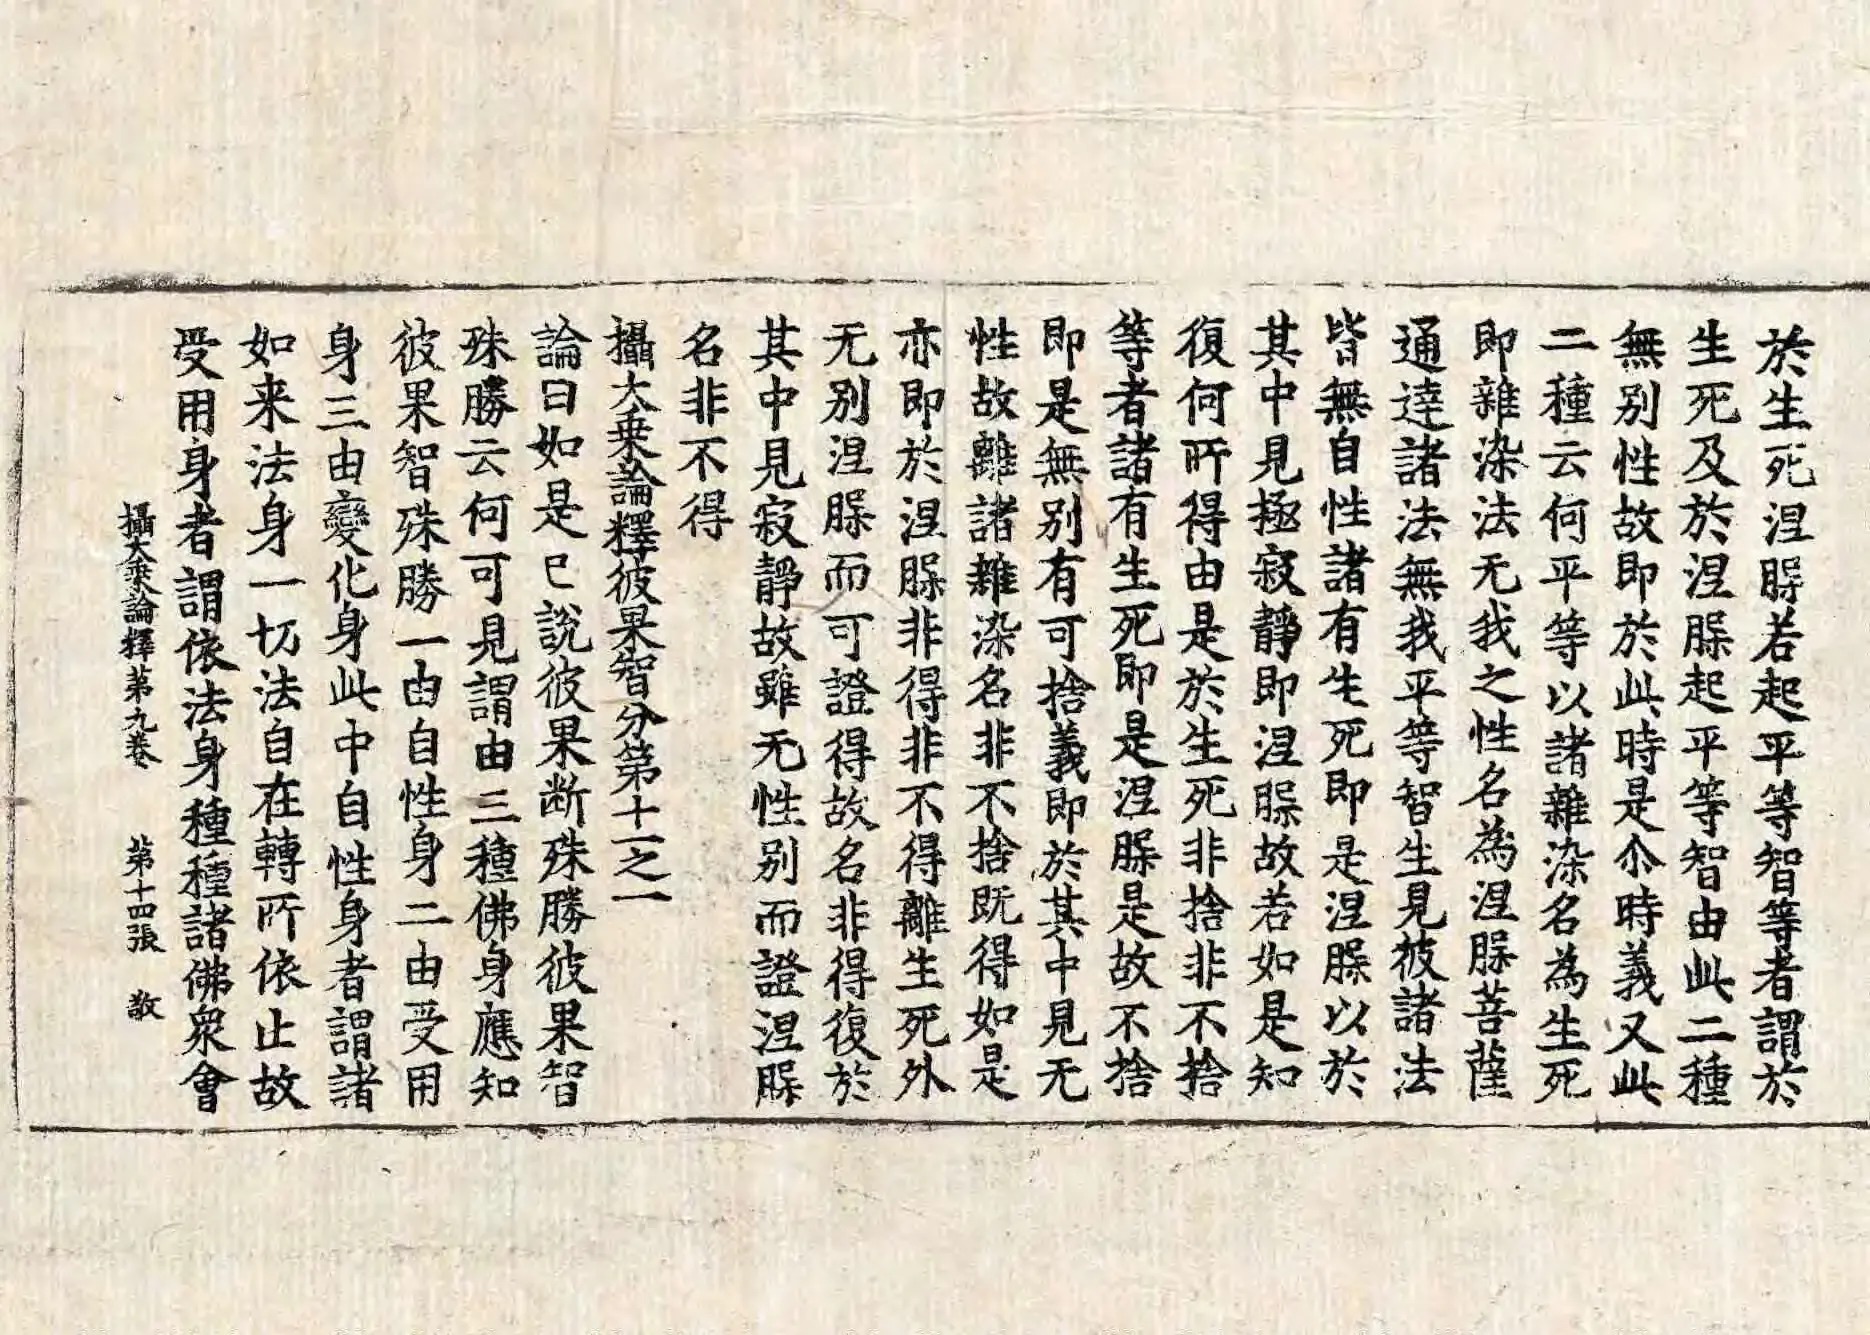 於生死涅槃若起平等智等者謂於
生死及於涅槃起平等智由此二種
無別性故即於此時是尒時義又此
二種云何平等以諸雜染名為生死
即雜染法无我之性名為涅槃菩薩
通達諸法無我平等智生見彼諸法
皆無自性諸有生死即是涅槃以於
其中見極寂靜即涅槃故若如是知
復何所得由是於生死非捨非不捨
等者諸有生死即是涅槃是故不捨
即是無別有可捨義即於其中見无
性故離諸雜染名非不捨既得如是
亦即於涅槃非得非不得離生死外
无別涅槃而可證得故名非得復於
其中見寂靜故雖无性別而證涅槃
名非不得
攝大乗論釋彼果智分第十一之一
論曰如是已說彼果断殊勝彼果智
殊勝云何可見謂由三種佛身應知
彼果智殊勝一由自性身二由受用
身三由變化身此中自性身者謂諸
如来法身一切法自在轉所依止故
受用身者謂依法身種種諸佛衆會
攝大乗論釋第九卷 第十四張 敎